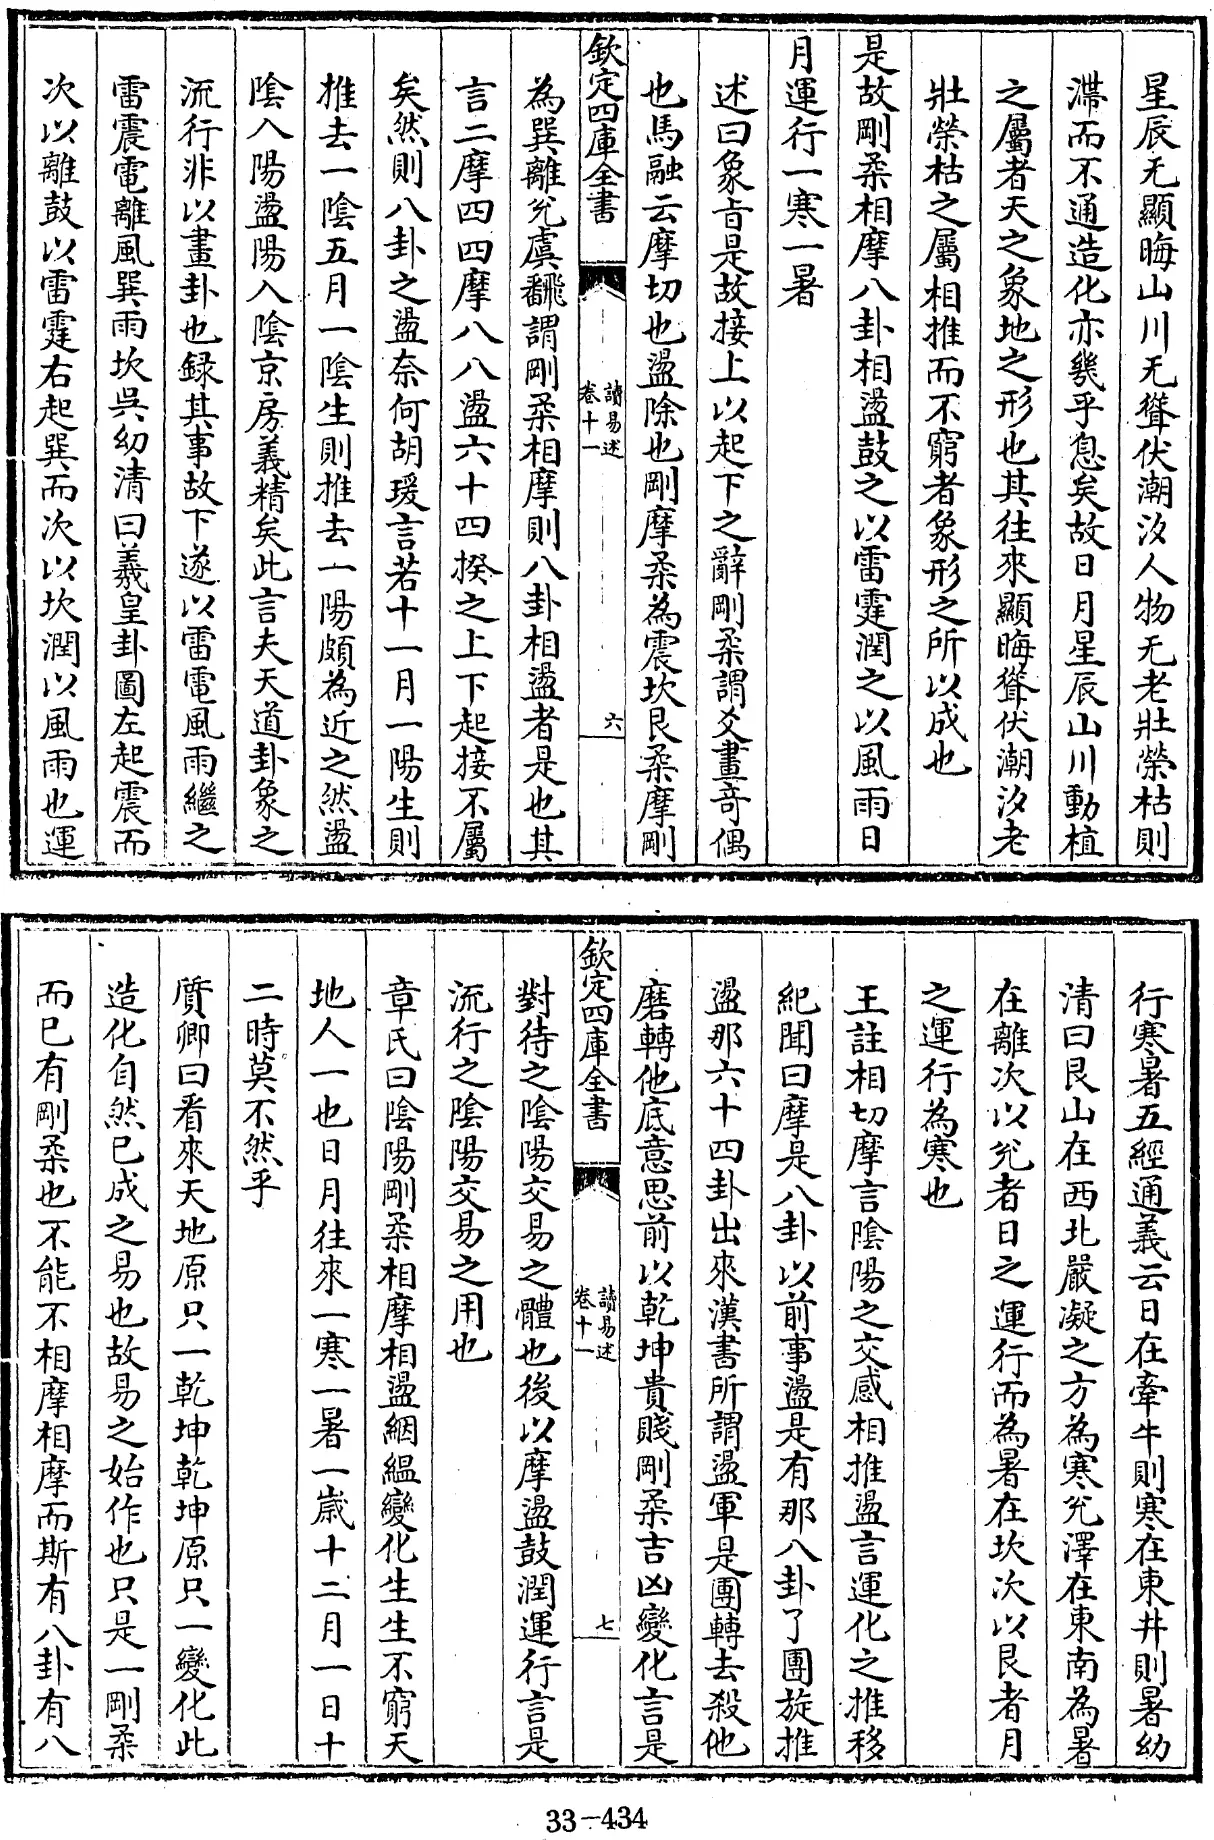 星辰无顯晦山川无聳伏潮汐人物无老壯榮枯則
滯而不通造化亦幾乎息矣故日月星辰山川動植
之屬者天之象地之形也其往來顯晦聳伏潮汐老
壯榮枯之屬相推而不窮者象形之所以成也
是故剛柔相摩八卦相盪鼓之以雷霆潤之以風雨日
月運行一寒一暑
述曰象旨是故接上以起下之辭剛柔謂爻畫奇偶
也馬融云摩切也盪除也剛摩柔為震坎艮柔摩剛
欽定四庫全書
讀易述
卷十一
六
為巽離兊虞翻謂剛柔相摩則八卦相盪者是也其
言二摩四四摩八八盪六十四揆之上下起接不屬
矣然則八卦之盪奈何胡瑗言若十一月一陽生則
推去一陰五月一陰生則推去一陽頗為近之然盪
陰入陽盪陽入陰京房義精矣此言夫天道卦象之
流行非以畫卦也録其事故下遂以雷電風雨繼之
雷震電離風巽雨坎吳幼清曰羲皇卦圖左起震而
次以離鼓以雷霆右起巽而次以坎潤以風雨也運
行寒暑五經通義云日在牽牛則寒在東井則暑幼
清曰艮山在西北嚴凝之方為寒兊澤在東南為暑
在離次以兊者日之運行而為暑在坎次以艮者月
之運行為寒也
王註相切摩言陰陽之交感相推盪言運化之推移
紀聞曰摩是八卦以前事盪是有那八卦了團旋推
盪那六十四卦出來漢書所謂盪軍是團轉去殺他
磨轉他底意思前以乾坤貴賤剛柔吉凶變化言是
欽定四庫全書
讀易述
卷十一
七
對待之陰陽交易之體也後以摩盪鼓潤運行言是
流行之陰陽交易之用也
章氏曰陰陽剛柔相摩相盪絪緼變化生生不窮天
地人一也日月往來一寒一暑一歲十二月一日十
二時莫不然乎
質卿曰看來天地原只一乾坤乾坤原只一變化此
造化自然已成之易也故易之始作也只是一剛柔
而已有剛柔也不能不相摩相摩而斯有八卦有八
33-434